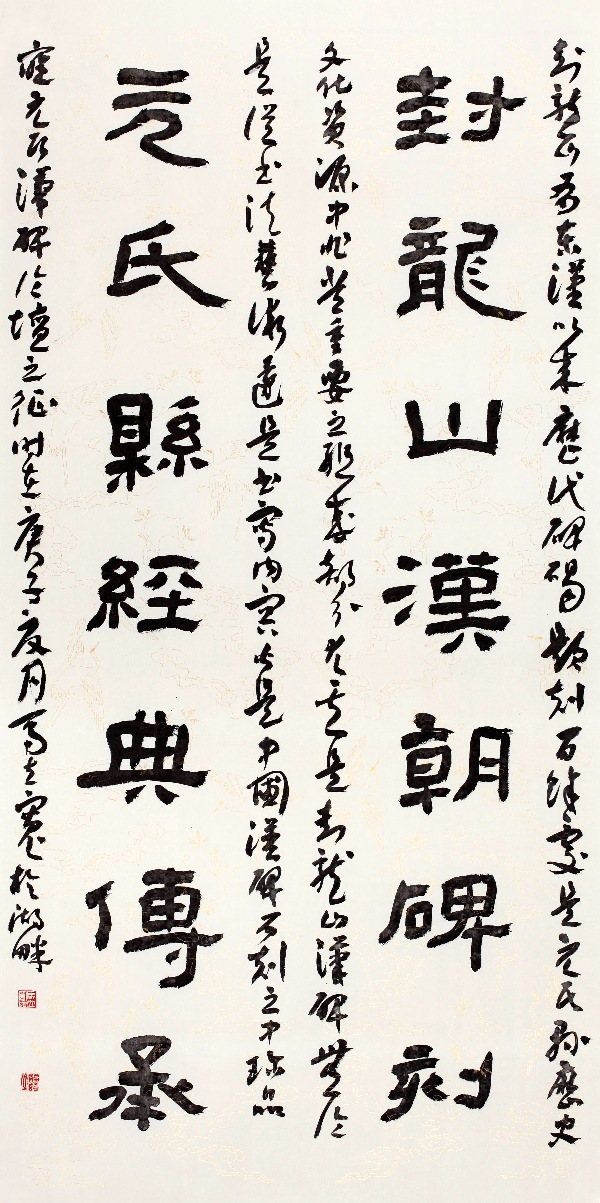 封龍山為東漢以來歷代碑碣題刻百餘處是元氏縣歷史
封龍山漢朝碑刻
文化資源中非常重要之組成部分尤其是封龍山漢碑無論
是從書法藝術還是書寫內容皆是中國漢碑石刻之中珍品
元氏縣經典傳承
應元氏漢碑論壇之征時在庚子夏月於湖畔